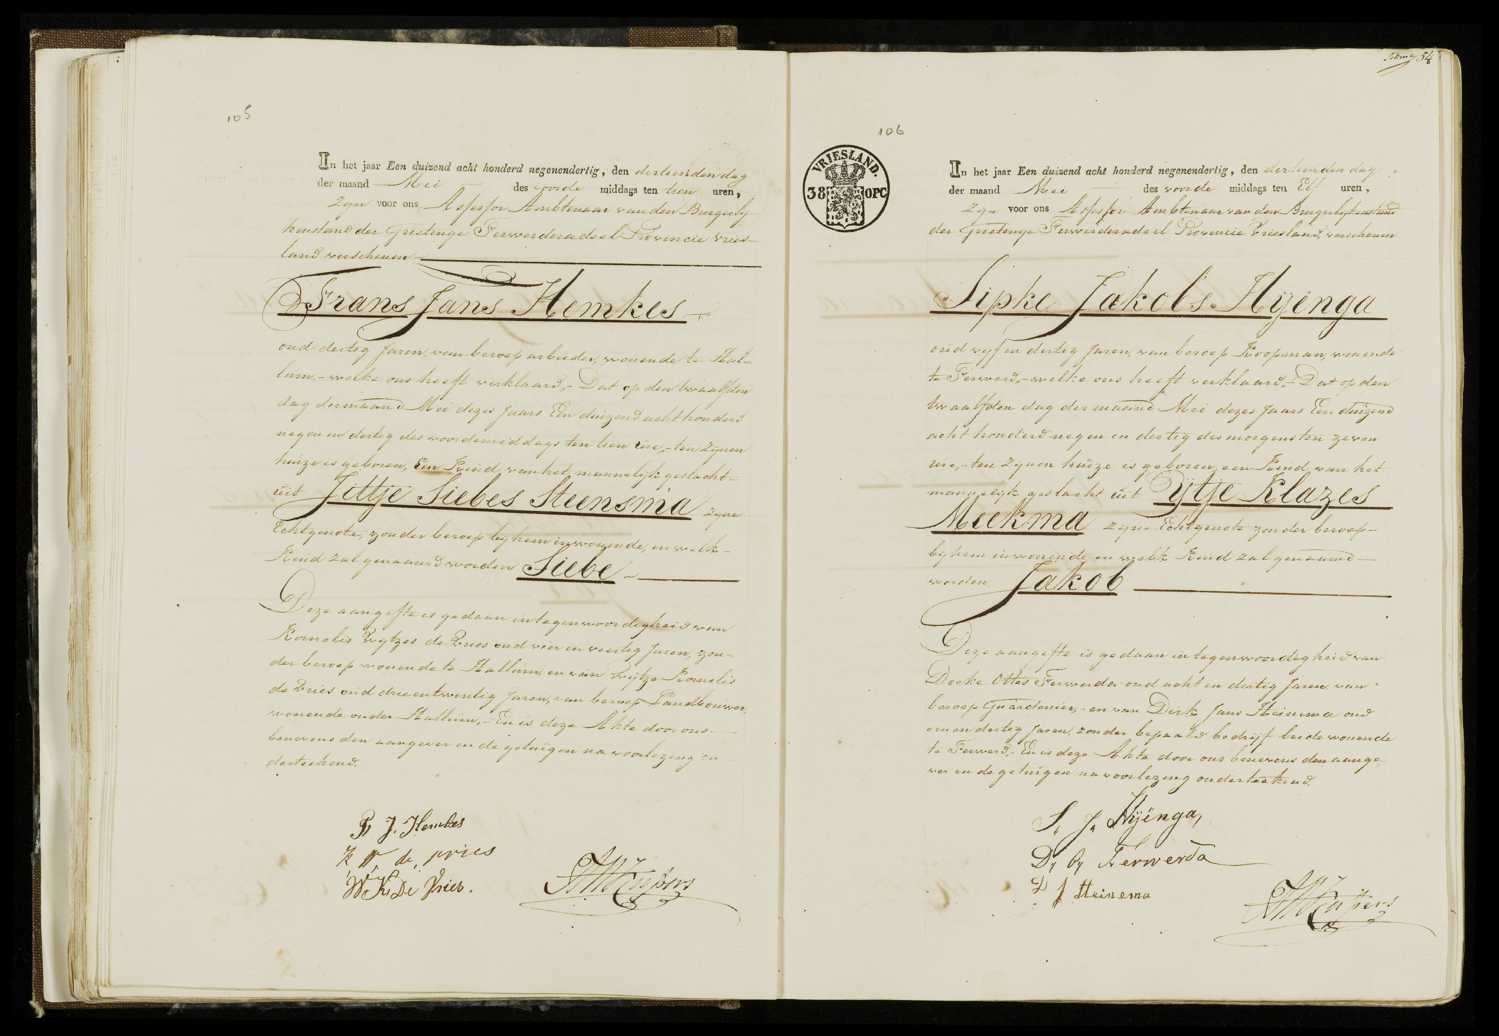 105
In het jaar Een duizend acht honderd negenendertig, den dertienden dag
der maand Mei des voorde middags ten tien uren,
zyn voor ons Assessor Ambtenaar van den Burgerly-
kenstand der Grietenye Ferwerderadeel Provincie Vries-
land verschenen
Frans Jans Hemkes
oud dertig Jaren, van beroep arbeider, wonende te Hal-
lum, - welke ons heeft verklaard, - Dat op den twaalfden
dag der maand Mei dezes Jaars Een duizend acht honderd
negen en dertig des voordemiddags ten tien ure, - ten zynen
huize is geboren, Een Kind, van het mannelyk geslacht -
uit Jittje Siebes Steensma zyne
Echtgenote, zonder beroep by hem inwonende, en welk -
Kind zal genaamd worden Siebe
Deze aangifte is gedaan in tegenwoordigheid van
Kornelis Wytzes de Vries oud vier en veertig Jaren, zon-
der beroep wonende te Hallum, en van Wytze Kornelis
de Vries oud drieentwintig Jaren, van beroep Landbouwer,
wonende onder Hallum, - En is deze Akte door ons -
benevens den aangever en de getuigen na voorlezing on
derteekend.
F. J. Hemkes
K W de vries
W K De Vries.
106
VRIESLAND.
38 OPC
In het jaar Een duizend acht honderd negenendertig, den dertienden dag
der maand Mei des voorde middags ten Elf uren,
zyn voor ons Assessor Ambtenaar van den Burgerlykenstand
der Grietenye Ferwerderadeel Provincie Vriesland, verschenen
Sipke Jakobs Hÿenga
oud vyf en dertig Jaren, van beroep Koopman, wonende
te Ferwerd, - welke ons heeft verklaard, - Dat op den
twaalfden dag der maand Mei dezes Jaars Een duizend
acht honderd negen en dertig des morgens ten zeven
ure, - ten zynen huize is geboren, een Kind, van het
mannelyk geslacht uit Ytje Klazes
Meekma zyne Echtgenote zonder beroep -
by hem inwonende, en welk Kind zal genaamd -
worden Jakob
Deze aangifte is gedaan in tegenwoordigheid van
Doeke Ottes Ferwerda oud acht en dertig Jaren, van
beroep Guardenier, - en van Derk Jans Heinema oud
een en dertig Jaren, zonder bepaald bedryf beide wonende
te Ferwerd, - En is deze Akte door ons benevens den aange
ver en de getuigen na voorlezing onderteekend.
S. J. Hÿenga,
D, O, Ferwerda
D J Heinema